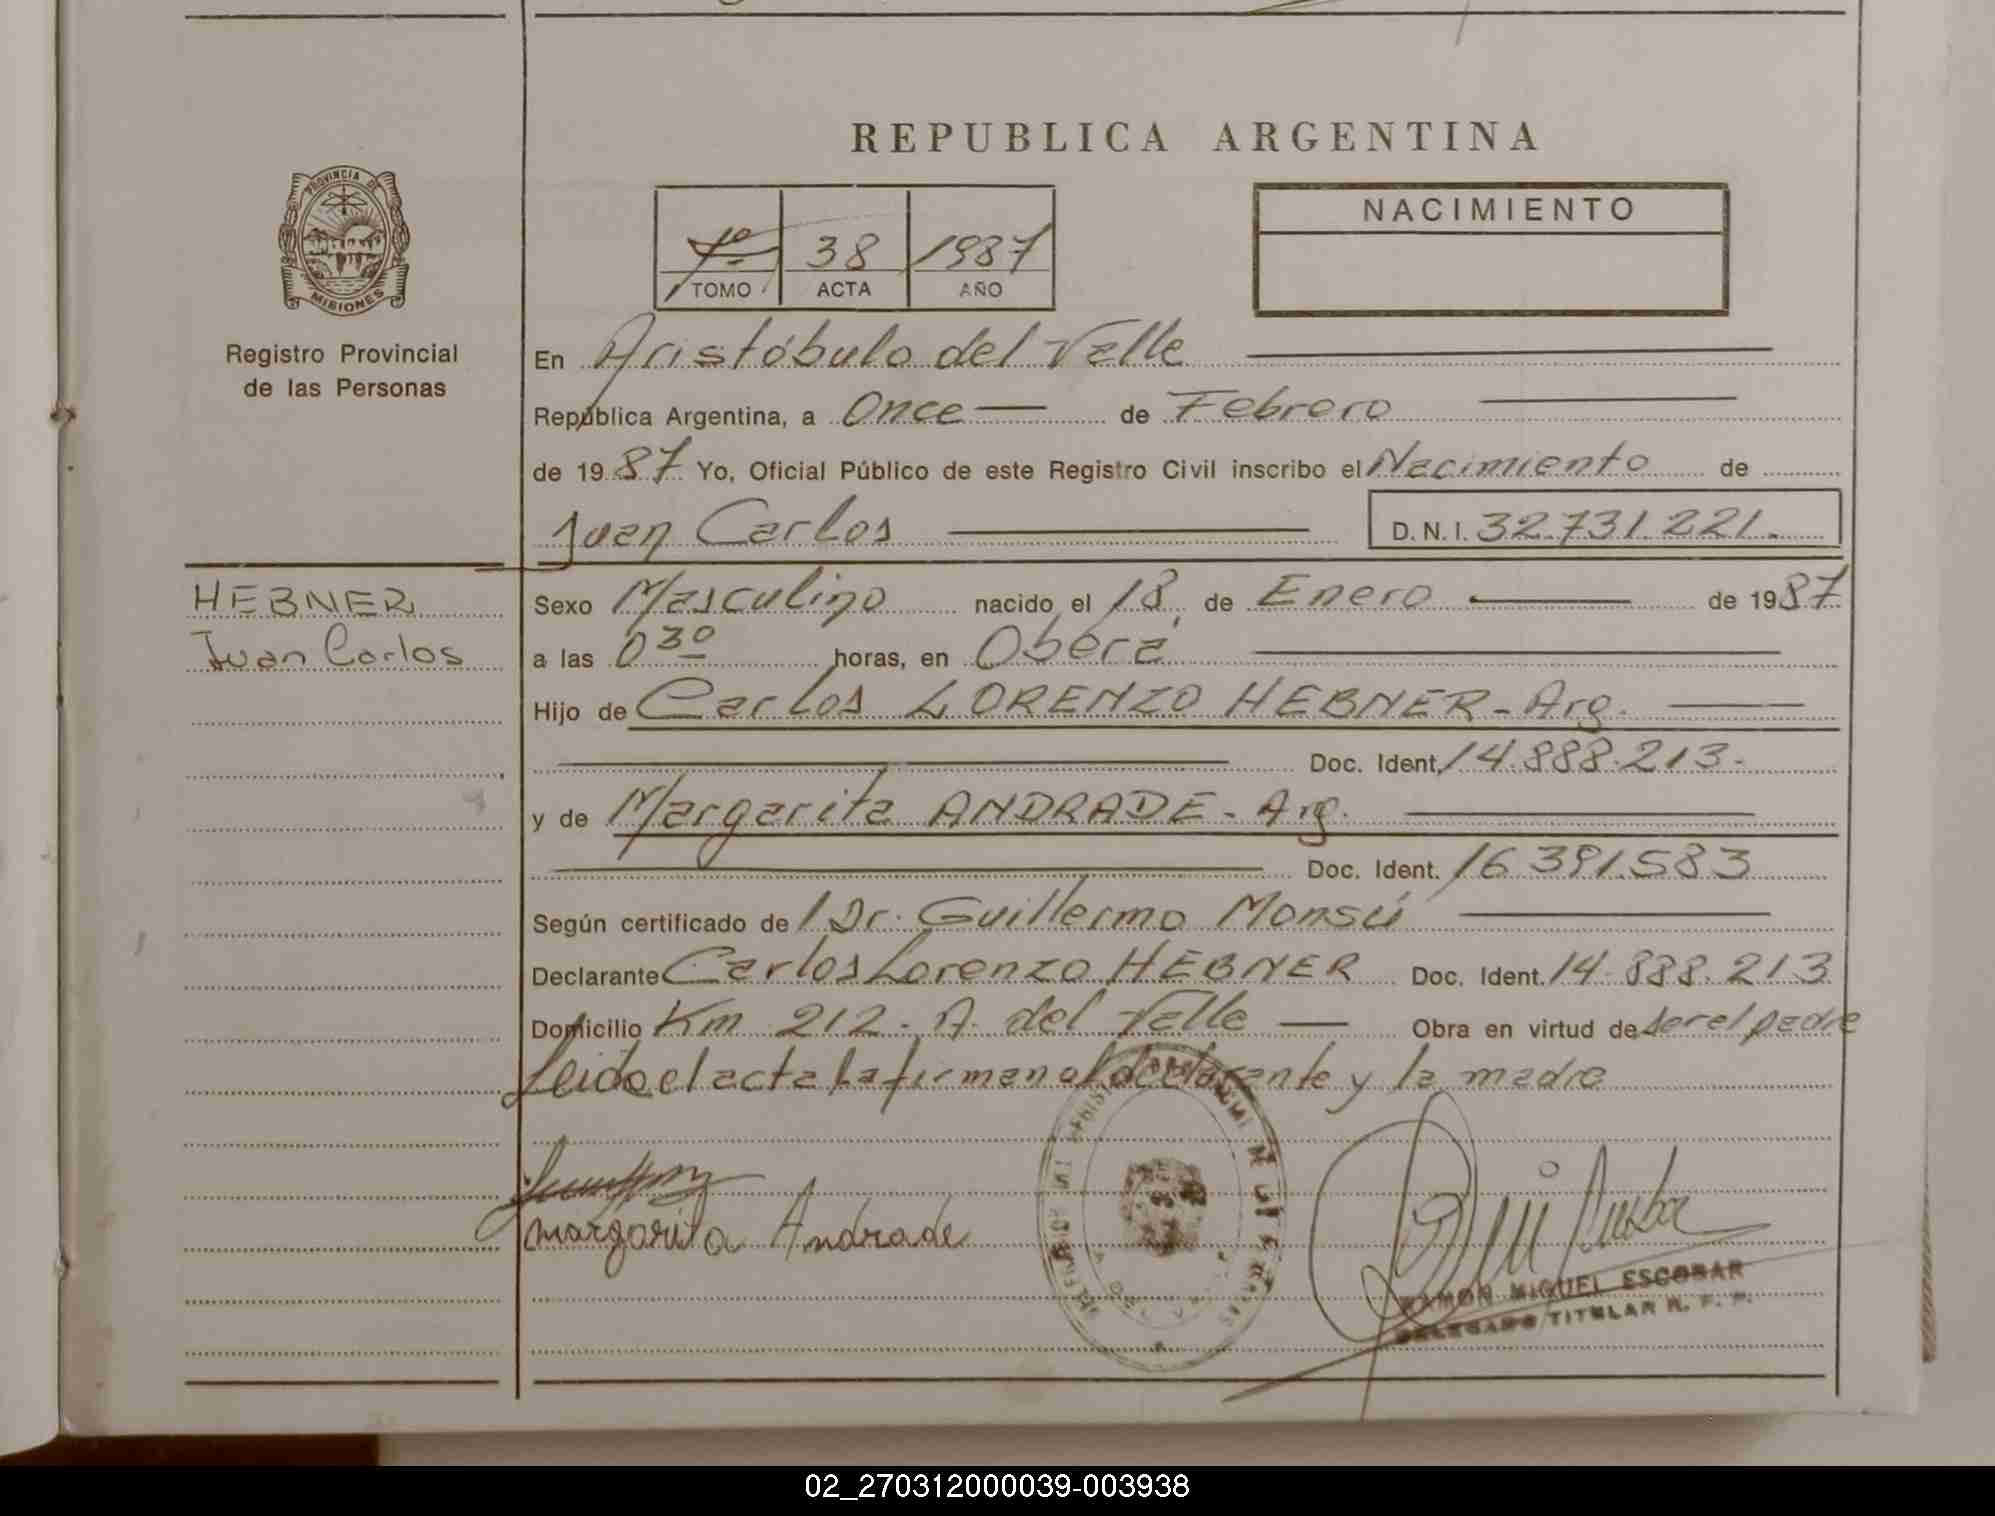 REPUBLICA ARGENTINA
PROVINCIA DE
MISIONES
Registro Provincial
de las Personas
1º 38 1987
TOMO ACTA AÑO
NACIMIENTO
En Aristóbulo del Valle
República Argentina, a Once de Febrero
de 1987 Yo, Oficial Público de este Registro Civil inscribo el Nacimiento de
Juan Carlos D.N.I. 32.731.221.
HEBNER
Juan Carlos
Sexo Masculino nacido el 18 de Enero de 1987
a las 03º horas, en Oberá
Hijo de Carlos LORENZO HEBNER - Arg.
Doc. Ident. 14.888.213.-
y de Margarita ANDRADE - Arg.
Doc. Ident. 16.391.583
Según certificado de Dr. Guillermo Monsú
Declarante Carlos Lorenzo HEBNER Doc. Ident. 14.888.213
Domicilio Km 212 - A. del Valle Obra en virtud de ser el padre
Leída el acta la firman el declarante y la madre
margarita Andrade
RAMON MIGUEL ESCOBAR
DELEGADO TITULAR R. P. P.
02_270312000039-003938